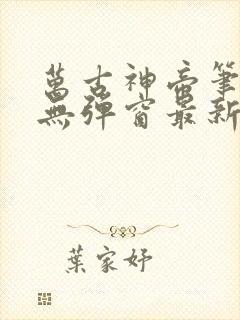 萬古神帝筆
無彈窗最新
葉家妤